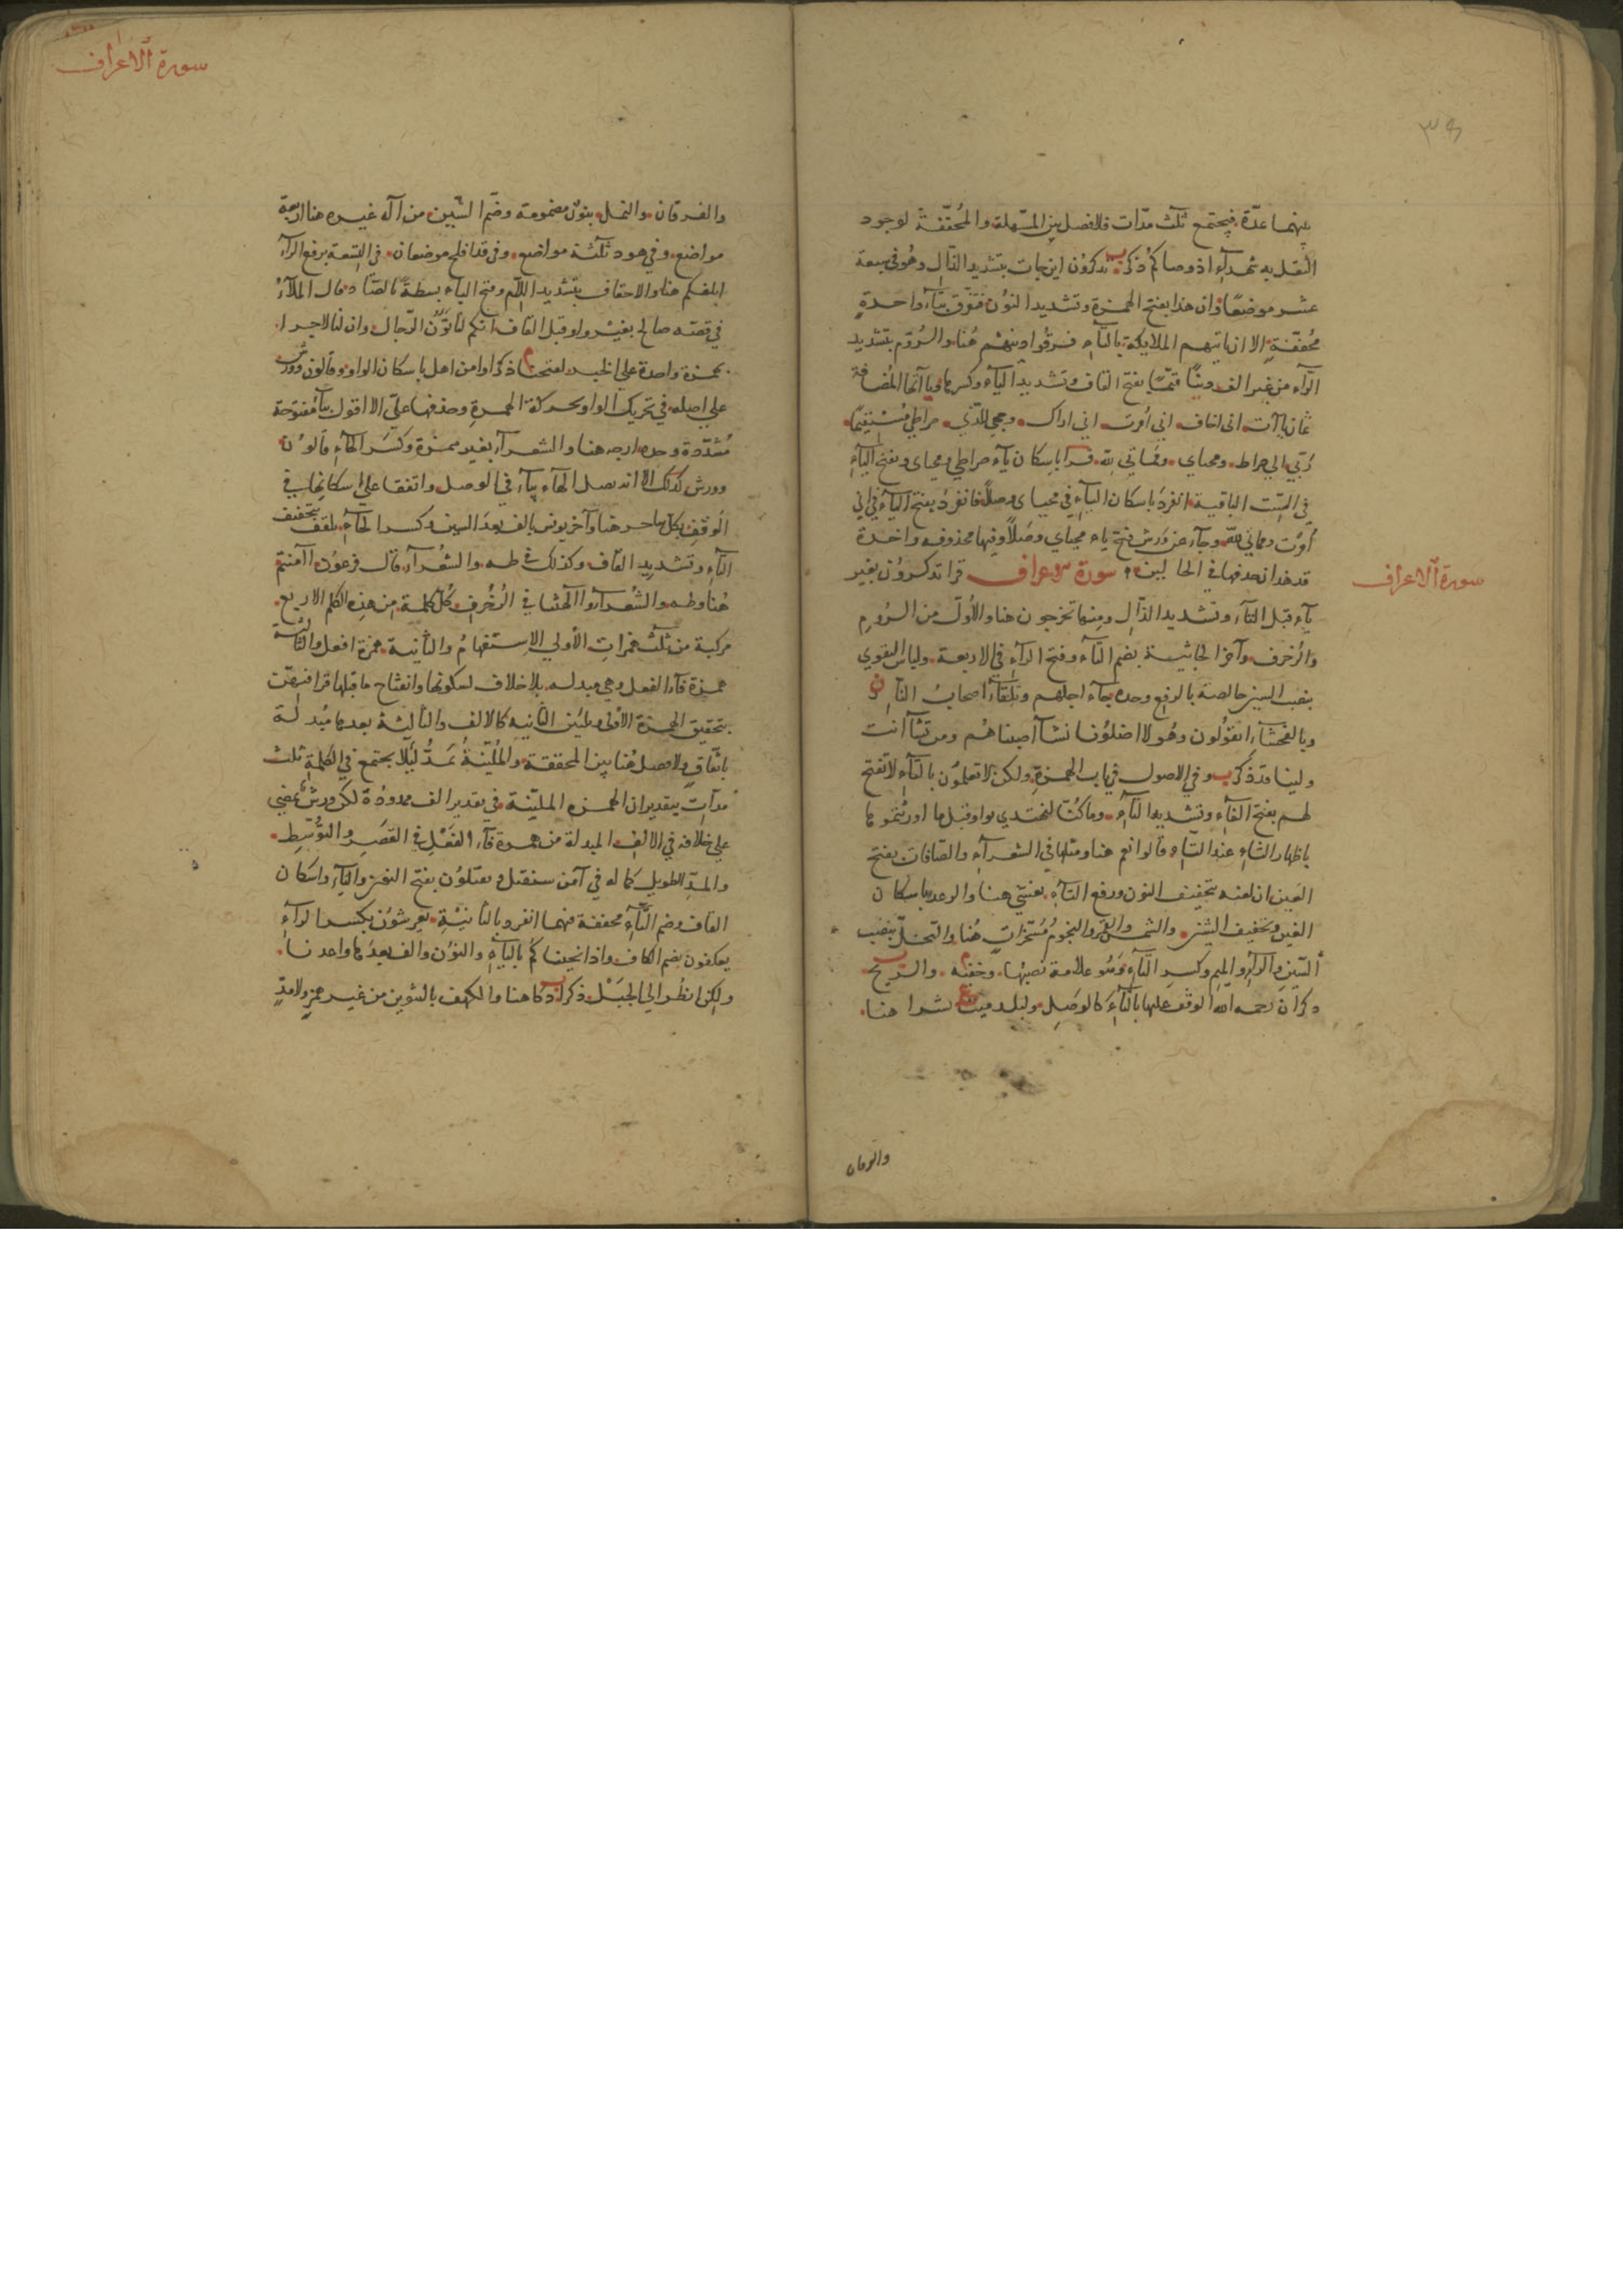 بينهما عدّة فيجتمع ثلث مدّات فلا فصل بين المسهلة والمخففة لوجود
الثقل به شهدآء اذ وصاكم ذكر تذكرون اين جات بتشديد الذال وهو في سبعة
عشر موضعا وان هذا بفتح الهمزة وتشديد النون فتفرق بتآء واحدة
مخففة الا ان ياتيهم الملايكة بالتآء فرقوا دينهم هنا والروم بتشديد
الرّآء من غير الف دينًا قيّمًا بفتح القاف وتشديد اليآء وكسرها ويا آتها المضافة
ثمان يا آت انى اخاف انى امرت انى اراك وجهي للذي صراطي مستقيمًا
ربي الي صراط ومحياي ومماتي لله قرا باسكان يآء صراطي ومحياى وبفتح اليآءِ
في الستّ الباقية انفرد باسكان اليآءِ في محياى وصلًا فانفرد بفتح اليآء في اني
أمرت ومماتي لله وجآء عن ورش فتح ياء محياي وصلًا وفيها محذوفه واحدة
قد هدان حذفها في الحالين سورة الاعراف قرا تذكرون بغير
سورة الاعراف
يآءٍ قبل التآء وتشديد الذال ومنها تخرجون هنا والأوّل من الروم
والزخرف وآخر الجاثية بضم التآء وفتح الرآء في الاربعة ولباس التقوي
بنصب السين خالصة بالرفع وحده جآء اجلهم وتلقآء اصحاب النار
وبالفحشآء اتقولون وهولا اضلونا نشآ اصبناهم ومن تشآ انت
ولينا قد ذكر وفي الاصول في باب الهمزة ولكن لا تعلمون بالتآءِ لا تفتح
لهم بفتح الفآءِ وتشديد التآءِ وما كنّا لنهتدي بواو قبل ما اورثتموها
باظهار الثاءِ عند التاءِ قالوا نعم هنا ومثلها في الشعرآء والصافات بفتح
العين ان لعنه بتخفيف النون ورفع التآء يغشي هنا والرعد باسكان
الغين وتخفيف الشين والشمس والقمر والنجوم مسخرات هنا والنحل بنصب
السين والرآء والميم وكسر التآءِ وهو علامة نصبها وخفيه والريح
ذكر ان رحمه الله الوقف عليها بالتاءِ كالوصل ولبلد ميت نشرا هنا
والفرقان
سورة الاعراف
والفرقان والنمل بنون مضمومة وضم الشين من آله غيره هنا اربعة
مواضع وفي هود ثلثة مواضع وفي قد افلح موضعان في التسعة برفع الرآء
ابلغكم هنا والاحقاف بتشديد اللام وفتح البآء بسطة بالصّاد قال الملاءُ
في قصّه صالح بغير واو قبل القاف انكم لتاتون الرجال وان لنا لاجرا
بهمزة واحدة علي الخبر لفتحنا ذكر اوامن اهل باسكان الواو وقالون وورش
علي اصله في تحريك الواو بحركة الهمزة وحذفها عليّ الا اقول بيآءٍ مفتوحة
مشدّدة وحده ارجه هنا والشعرآء بغير همزة وكسر الهآءِ قالون
وورش كذلك الا انه يصل الهآء بيآءٍ في الوصل واتفقا علي اسكانها في
الوقف بكل ساحر هنا وآخر يونس بالف بعد السين وكسر الحآءِ تلقف بتخفيف
التآءِ وتشديد القاف وكذلك في طه والشعرآء قال فرعون اآمنتم
هُنا وطه والشعرآء وآلهتنا في الزخرف كل كلمة من هذه الكلم الاربع
مركبة من ثلث همزاتٍ الأولي الإستفهامُ والثانية همزة افعل والثالثة
همزة فآء الفعل وهي مبدله بلا خلاف لسكونها وانفتاح ما قبلها قرا فيهنّ
بتحقيق الهمزة الأولى وتليين الثانيه كالالف والثالثة بعدها مبدلة
باتفاقٍ ولا فصل هُنا بين المحققة والمليّنةُ بمدٍّ ليلا يجتمع في الكلمة ثلث
مدآتٍ بتقدير ان الهمزه المليّنة في تقدير الف ممدودة لكن ورش يمضي
علي خلافه في الالف المبدلة من همزة فآء الفعلِ في القصَرِ والتوُّسطِ
والمدّ الطويل كما له في آمن سنقتل ويقتلون بفتح النون واليآءِ واسكان
القاف وضم التّآءِ مخففة فيهما انفرد بالثانيةِ يعرشون بكسر الرآءِ
يعكفون بضم الكاف واذ انجيناكم باليآءِ والنون والف بعدها واعدنا
ولكن انظر الي الجبل ذكر دكا هنا والكهف بالتنوين من غير همزٍ ولا مدٍّ